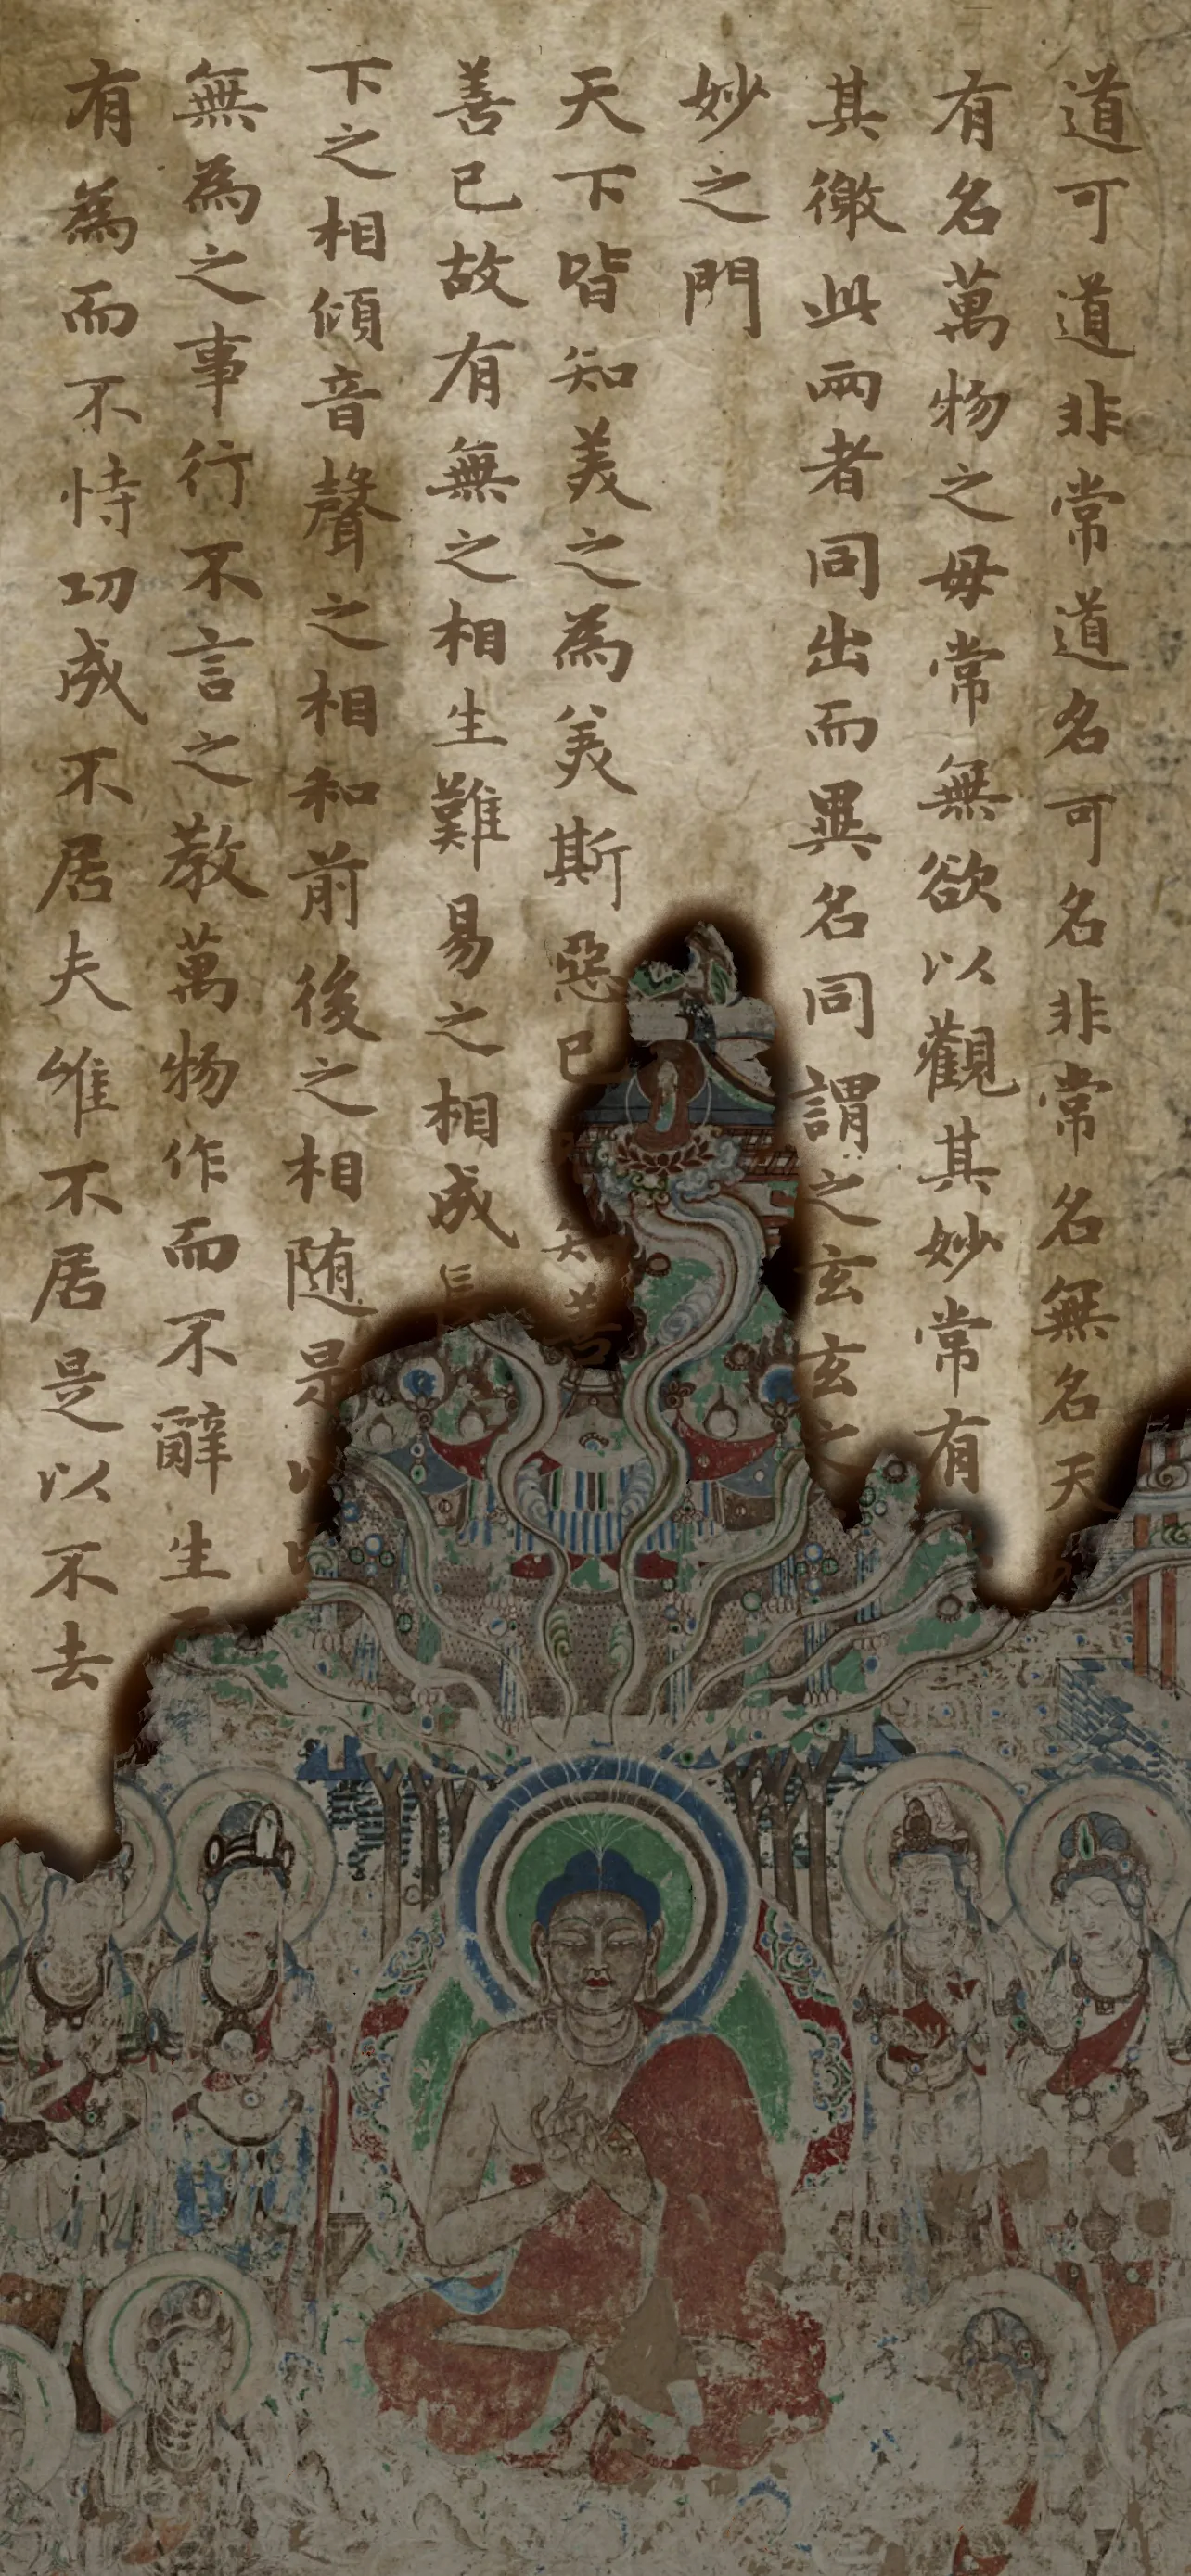 道可道非常道名可名非常名無名天
有名萬物之母常無欲以觀其妙常有
其徼此兩者同出而異名同謂之玄玄之
妙之門
天下皆知美之為美斯惡已知善
善已故有無之相生難易之相成長
下之相傾音聲之相和前後之相随是以
無為之事行不言之教萬物作而不辭生而
有為而不恃功成不居夫唯不居是以不去